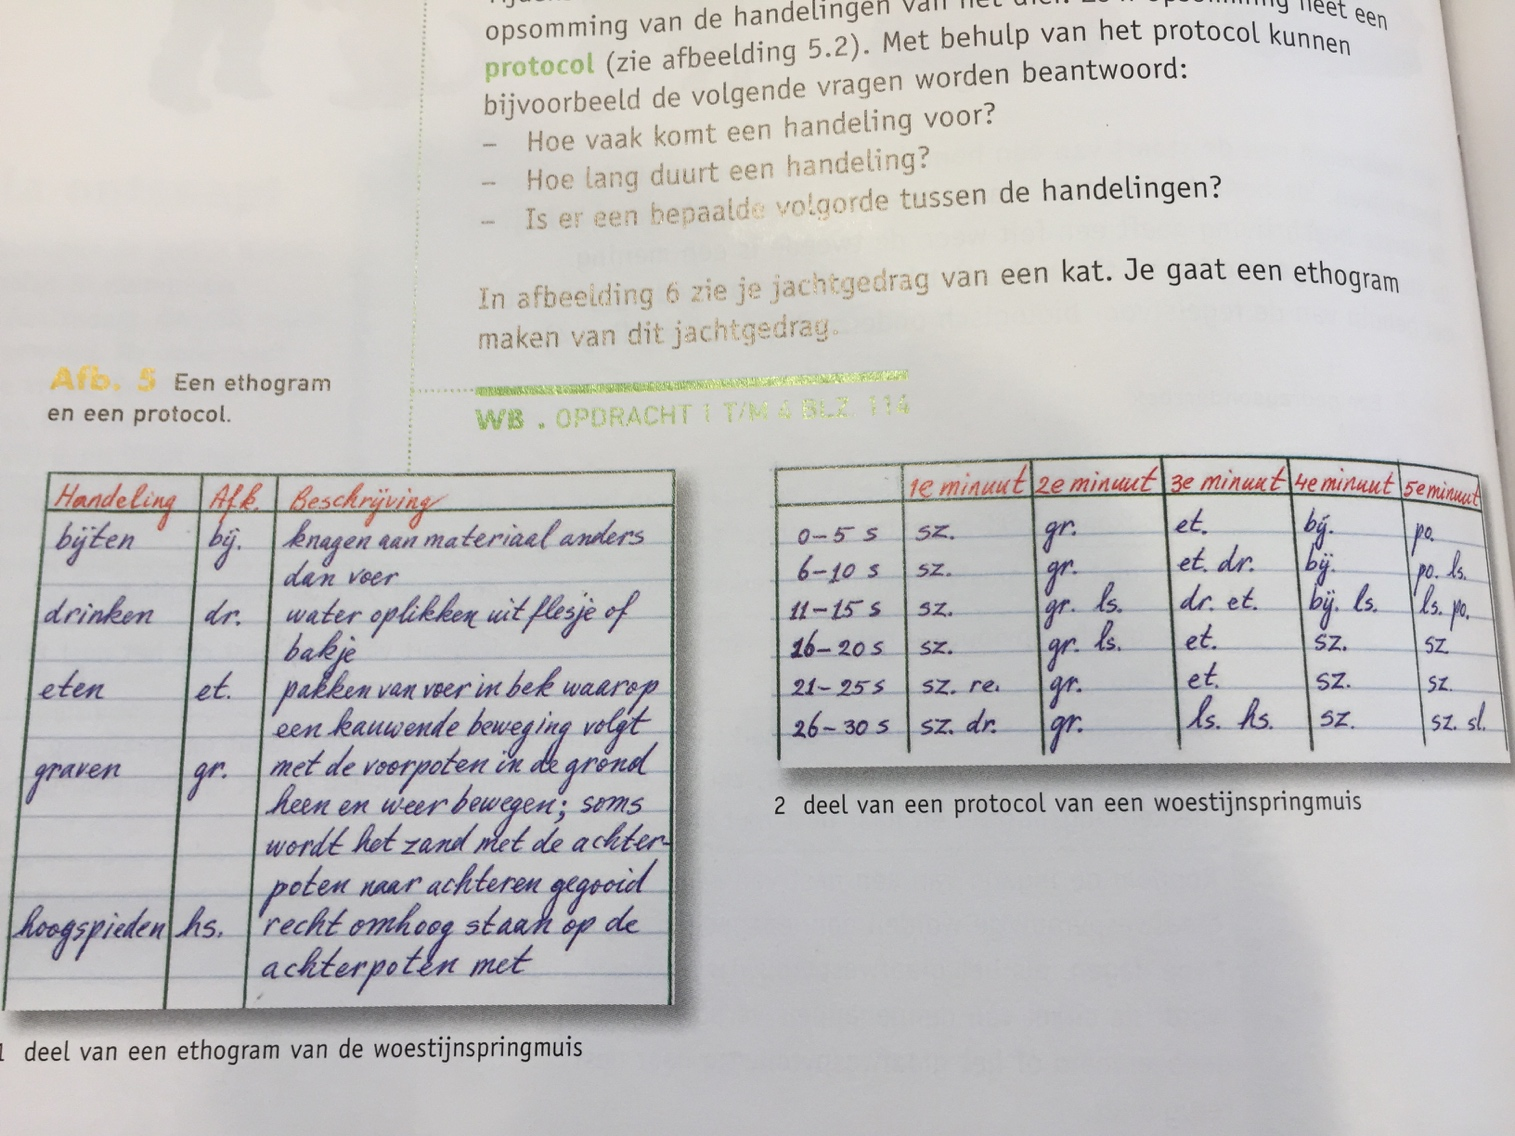 opsomming van de handelingen van het dier. een
protocol (zie afbeelding 5.2). Met behulp van het protocol kunnen
bijvoorbeeld de volgende vragen worden beantwoord:
– Hoe vaak komt een handeling voor?
– Hoe lang duurt een handeling?
– Is er een bepaalde volgorde tussen de handelingen?
In afbeelding 6 zie je jachtgedrag van een kat. Je gaat een ethogram
maken van dit jachtgedrag.
WB . OPDRACHT 1 T/M 4 BLZ. 114
Afb. 5 Een ethogram
en een protocol.
Handeling Afk. Beschrijving
bijten bij. knagen aan materiaal anders
dan voer
drinken dr. water oplikken uit flesje of
bakje
eten et. pakken van voer in bek waarop
een kauwende beweging volgt
graven gr. met de voorpoten in de grond
heen en weer bewegen; soms
wordt het zand met de achter-
poten naar achteren gegooid
hoogspieden hs. recht omhoog staan op de
achterpoten met
1 deel van een ethogram van de woestijnspringmuis
1e minuut 2e minuut 3e minuut 4e minuut 5e minuut
0–5 s sz. gr. et. bij. po.
6–10 s sz. gr. et. dr. bij. po. ls.
11–15 s sz. gr. ls. dr. et. bij. ls. ls. po.
16–20 s sz. gr. ls. et. sz. sz
21–25 s sz. re. gr. et. sz. sz.
26–30 s sz. dr. gr. ls. hs. sz. sz. sl.
2 deel van een protocol van een woestijnspringmuis